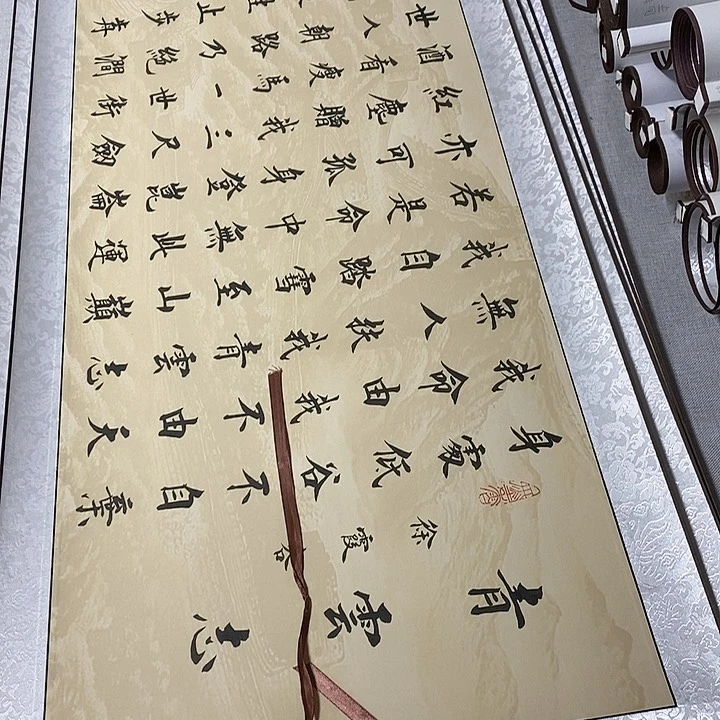 青雲志
徐霞客
身處低谷不自棄
我命由我不由天
無人扶我青雲志
我自踏雪至山巔
若是命中無此運
亦可孤身登崑崙
紅塵贈我三尺劍
酒看瘦馬一世街
世人朝路乃絕澗
止步